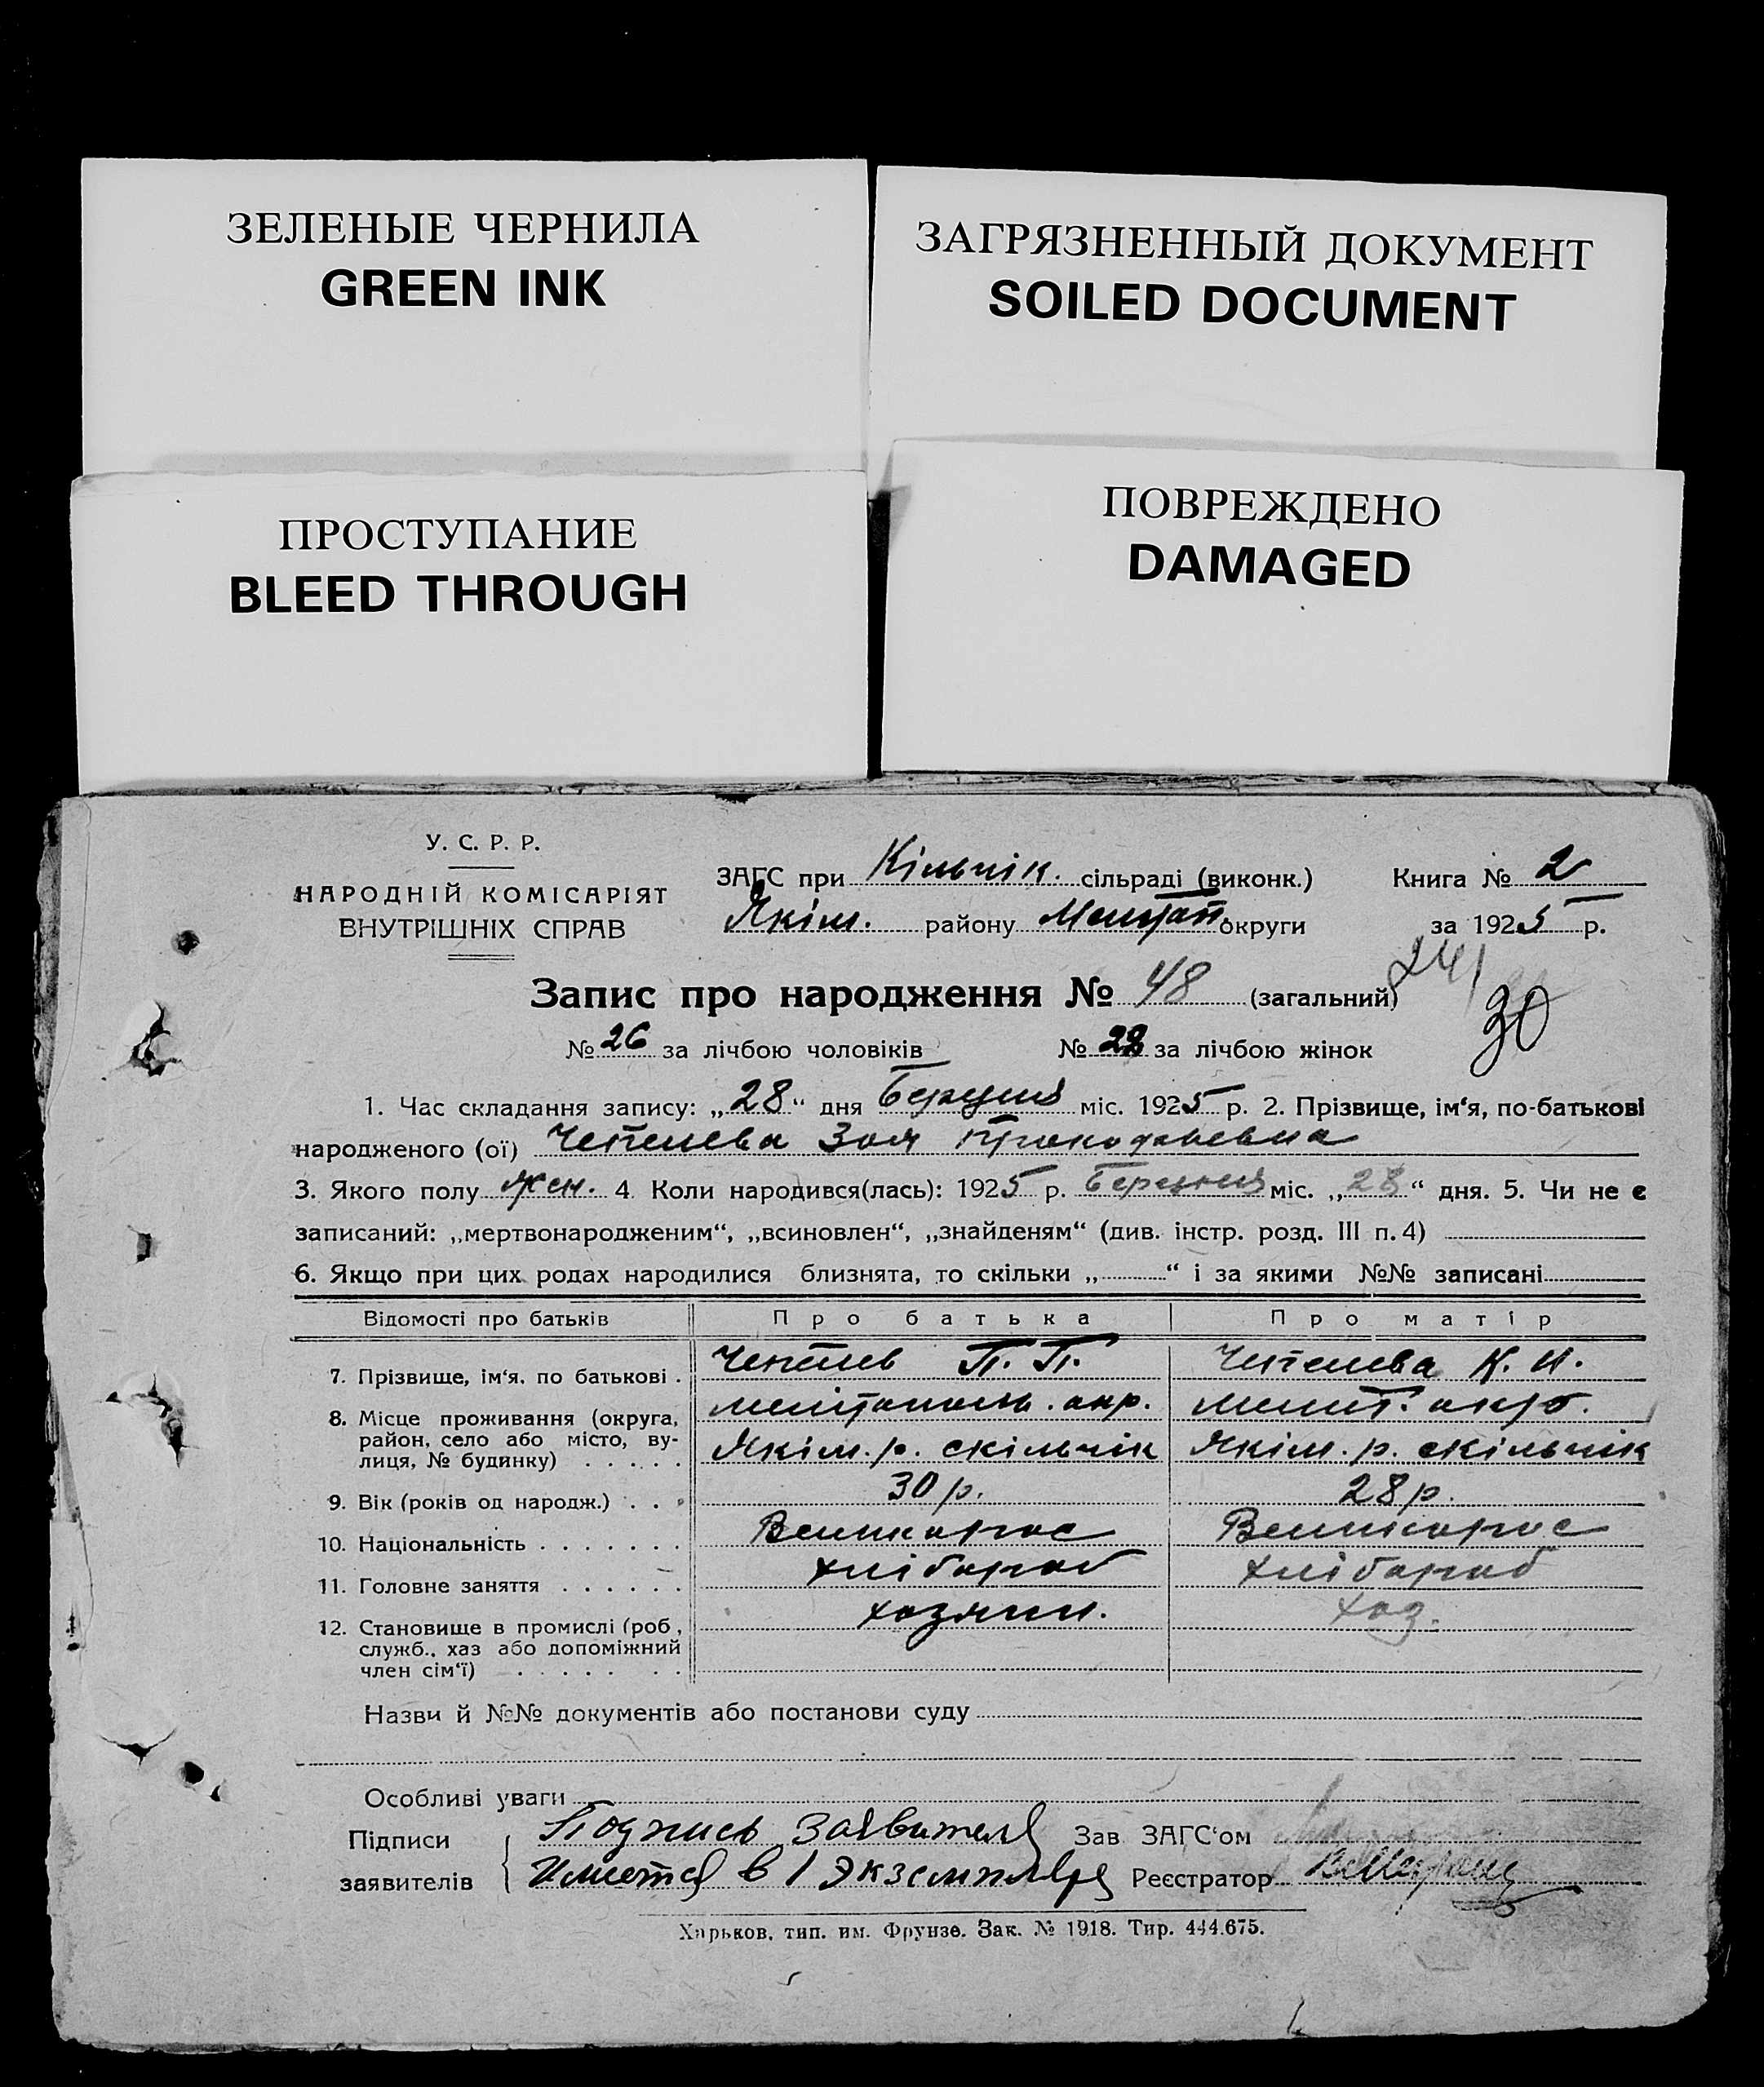 ЗЕЛЕНЫЕ ЧЕРНИЛА
GREEN INK
ЗАГРЯЗНЕННЫЙ ДОКУМЕНТ
SOILED DOCUMENT
ПРОСТУПАНИЕ
BLEED THROUGH
ПОВРЕЖДЕНО
DAMAGED
У. С. Р. Р.
НАРОДНІЙ КОМІСАРІЯТ
ВНУТРІШНІХ СПРАВ
ЗАГС при Кільчік. сільраді (виконк.) Книга № 2
Якім. району Меліт. округи за 1925 р.
241
Запис про народження № 48 (загальний)
30
№ 26 за лічбою чоловіків № 22 за лічбою жінок
1. Час складання запису: „28“ дня Березня міс. 1925 р. 2. Прізвище, ім‘я, по-батькові
народженого (ої) Чепелева Зоя
3. Якого полу жен. 4. Коли народився(лась): 1925 р. Березня міс. „28“ дня. 5. Чи не є
записаний: „мертвонародженим“, „всиновлен“, „знайденям“ (див. інстр. розд. III п. 4)
6. Якщо при цих родах народилися близнята, то скільки „ “ і за якими №№ записані
Відомості про батьків Про батька Про матір
7. Прізвище, ім‘я, по батькові . Чепелев П. П. Чепелева К. И.
8. Місце проживання (округа, район, село або місто, вулиця, № будинку) . . . . . мелітополь. окр. мелит. окр.
Якім. р. с кільчік Якім. р. с кільчік
9. Вік (років од народж.) . . . 30 р. 28 р.
10. Національність . . . . . . . Великорос Великорос
11. Головне заняття . . . . . . хлібороб хлібороб
12. Становище в промислі (роб., служб., хаз або допоміжний член сім‘ї) хозяин. хоз.
Назви й №№ документів або постанови суду
Особливі уваги
Підписи Подпись Заявителя Зав ЗАГС‘ом
заявителів Имеется в 1 Экземпляре Реєстратор
Харьков, тип. им. Фрунзе. Зак. № 1918. Тир. 444.675.